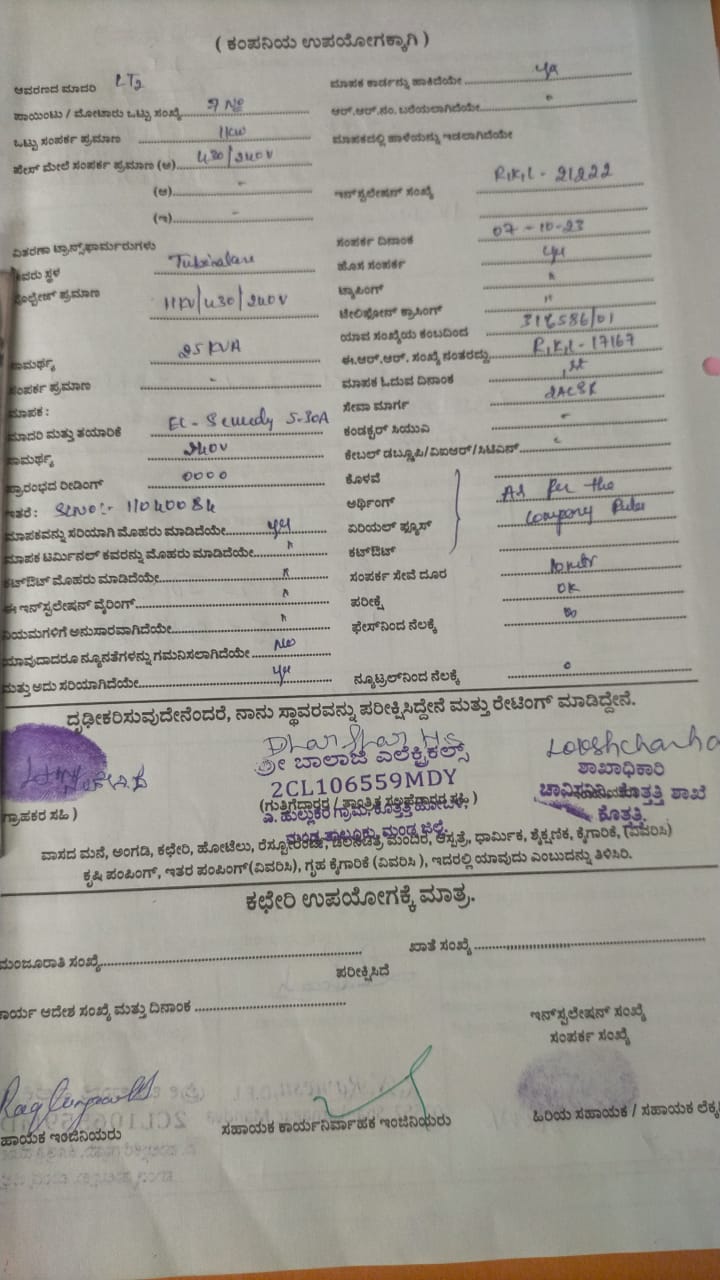 ( ಕಂಪನಿಯ ಉಪಯೋಗಕ್ಕಾಗಿ )
ಆವರಣದ ಮಾದರಿ LT2
ಮಾಪಕ ಕಾರ್ಡನ್ನು ಹಾಕಿದೆಯೇ
ಪಾಯಿಂಟು / ಮೋಟಾರು ಒಟ್ಟು ಸಂಖ್ಯೆ 7 No
ಆರ್.ಆರ್.ನಂ. ಬರೆಯಲಾಗಿದೆಯೇ "
ಒಟ್ಟು ಸಂಪರ್ಕ ಪ್ರಮಾಣ 1kw
ಮಾಪಕದಲ್ಲಿ ಹಾಳೆಯನ್ನು ಇಡಲಾಗಿದೆಯೇ
ಫೇಸ್ ಮೇಲೆ ಸಂಪರ್ಕ ಪ್ರಮಾಣ (ಅ) 430/240V
(ಆ) -
ಇನ್‌ಸ್ಟಲೇಷನ್ ಸಂಖ್ಯೆ R,K,L - 21222
(ಇ) -
ವಿತರಣಾ ಟ್ರಾನ್ಸ್‌ಫಾರ್ಮರುಗಳು
ಸಂಪರ್ಕ ದಿನಾಂಕ 07-10-23
ಸ್ಥಳ
ಹೊಸ ಸಂಪರ್ಕ
ಪ್ರಮಾಣ 11KV/430/240V
ಟ್ಯಾಪಿಂಗ್ "
ಟೆಲಿಫೋನ್ ಕ್ರಾಸಿಂಗ್ "
ಯಾವ ಸಂಖ್ಯೆಯ ಕಂಬದಿಂದ 318586/01
ಸಾಮರ್ಥ್ಯ 25 KVA
ಈ.ಆರ್.ಆರ್. ಸಂಖ್ಯೆ ನಂತರದ್ದು R,K,L - 17167
ಸಂಪರ್ಕ ಪ್ರಮಾಣ -
ಮಾಪಕ ಓದುವ ದಿನಾಂಕ 1st
ಮಾಪಕ :
ಸೇವಾ ಮಾರ್ಗ 2ACSR
ಮಾದರಿ ಮತ್ತು ತಯಾರಿಕೆ 5-30A
ಕಂಡಕ್ಟರ್ ಸಿಯುವಿ -
ಸಾಮರ್ಥ್ಯ 240V
ಕೇಬಲ್ ಡಬ್ಲ್ಯೂಪಿ/ವಿಐಆರ್/ಸಿಟಿಎಸ್
ಪ್ರಾರಂಭದ ರೀಡಿಂಗ್ 0000
ಕೊಳವೆ
ಇತರೆ : SLNO :- 11040084
ಅರ್ಥಿಂಗ್ As per the
ಮಾಪಕವನ್ನು ಸರಿಯಾಗಿ ಮೊಹರು ಮಾಡಿದೆಯೇ
ಏರಿಯಲ್ ಫ್ಯೂಸ್ Company Rules
ಮಾಪಕ ಟರ್ಮಿನಲ್ ಕವರನ್ನು ಮೊಹರು ಮಾಡಿದೆಯೇ "
ಕಟ್‌ಔಟ್
ಕಟ್‌ಔಟ್ ಮೊಹರು ಮಾಡಿದೆಯೇ "
ಸಂಪರ್ಕ ಸೇವೆ ದೂರ
ಈ ಇನ್‌ಸ್ಟಲೇಷನ್ ವೈರಿಂಗ್ "
ಪರೀಕ್ಷೆ OK
ನಿಯಮಗಳಿಗೆ ಅನುಸಾರವಾಗಿದೆಯೇ "
ಫೇಸ್‌ನಿಂದ ನೆಲಕ್ಕೆ
ಯಾವುದಾದರೂ ನ್ಯೂನತೆಗಳನ್ನು ಗಮನಿಸಲಾಗಿದೆಯೇ No
ಮತ್ತು ಅದು ಸರಿಯಾಗಿದೆಯೇ
ನ್ಯೂಟ್ರಲ್‌ನಿಂದ ನೆಲಕ್ಕೆ 0
ದೃಢೀಕರಿಸುವುದೇನೆಂದರೆ, ನಾನು ಸ್ಥಾವರವನ್ನು ಪರೀಕ್ಷಿಸಿದ್ದೇನೆ ಮತ್ತು ರೇಟಿಂಗ್ ಮಾಡಿದ್ದೇನೆ.
ಶ್ರೀ ಬಾಲಾಜಿ ಎಲೆಕ್ಟ್ರಿಕಲ್ಸ್
ಶಾಖಾಧಿಕಾರಿ
2CL106559MDY
ಚಾವಿಸನಿನಿ, ಕೊತ್ತತ್ತಿ ಶಾಖೆ
ಗ್ರಾಹಕರ ಸಹಿ )
ಕೊತ್ತತ್ತಿ
ವಾಸದ ಮನೆ, ಅಂಗಡಿ, ಕಛೇರಿ, ಹೋಟೆಲು, ರೆಸ್ಟೋರೆಂಟು, ಚಲನಚಿತ್ರ ಮಂದಿರ, ಆಸ್ಪತ್ರೆ, ಧಾರ್ಮಿಕ, ಶೈಕ್ಷಣಿಕ, ಕೈಗಾರಿಕೆ, (ವಿವರಿಸಿ)
ಕೃಷಿ ಪಂಪಿಂಗ್, ಇತರ ಪಂಪಿಂಗ್(ವಿವರಿಸಿ), ಗೃಹ ಕೈಗಾರಿಕೆ (ವಿವರಿಸಿ ), ಇದರಲ್ಲಿ ಯಾವುದು ಎಂಬುದನ್ನು ತಿಳಿಸಿರಿ.
ಕಛೇರಿ ಉಪಯೋಗಕ್ಕೆ ಮಾತ್ರ.
ಮಂಜೂರಾತಿ ಸಂಖ್ಯೆ
ಖಾತೆ ಸಂಖ್ಯೆ
ಪರೀಕ್ಷಿಸಿದೆ
ಕಾರ್ಯ ಆದೇಶ ಸಂಖ್ಯೆ ಮತ್ತು ದಿನಾಂಕ
ಇನ್‌ಸ್ಟಲೇಷನ್ ಸಂಖ್ಯೆ
ಸಂಪರ್ಕ ಸಂಖ್ಯೆ
ಸಹಾಯಕ ಇಂಜಿನಿಯರು
ಸಹಾಯಕ ಕಾರ್ಯನಿರ್ವಾಹಕ ಇಂಜಿನಿಯರು
ಹಿರಿಯ ಸಹಾಯಕ / ಸಹಾಯಕ